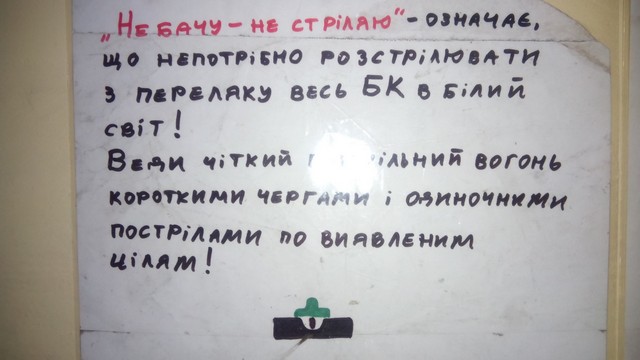 „Не бачу – не стріляю“ – означає,
що непотрібно розстрілювати
з переляку весь БК в білий
світ!
Веди чіткий вогонь
короткими чергами і одиночними
пострілами по виявленим
цілям!